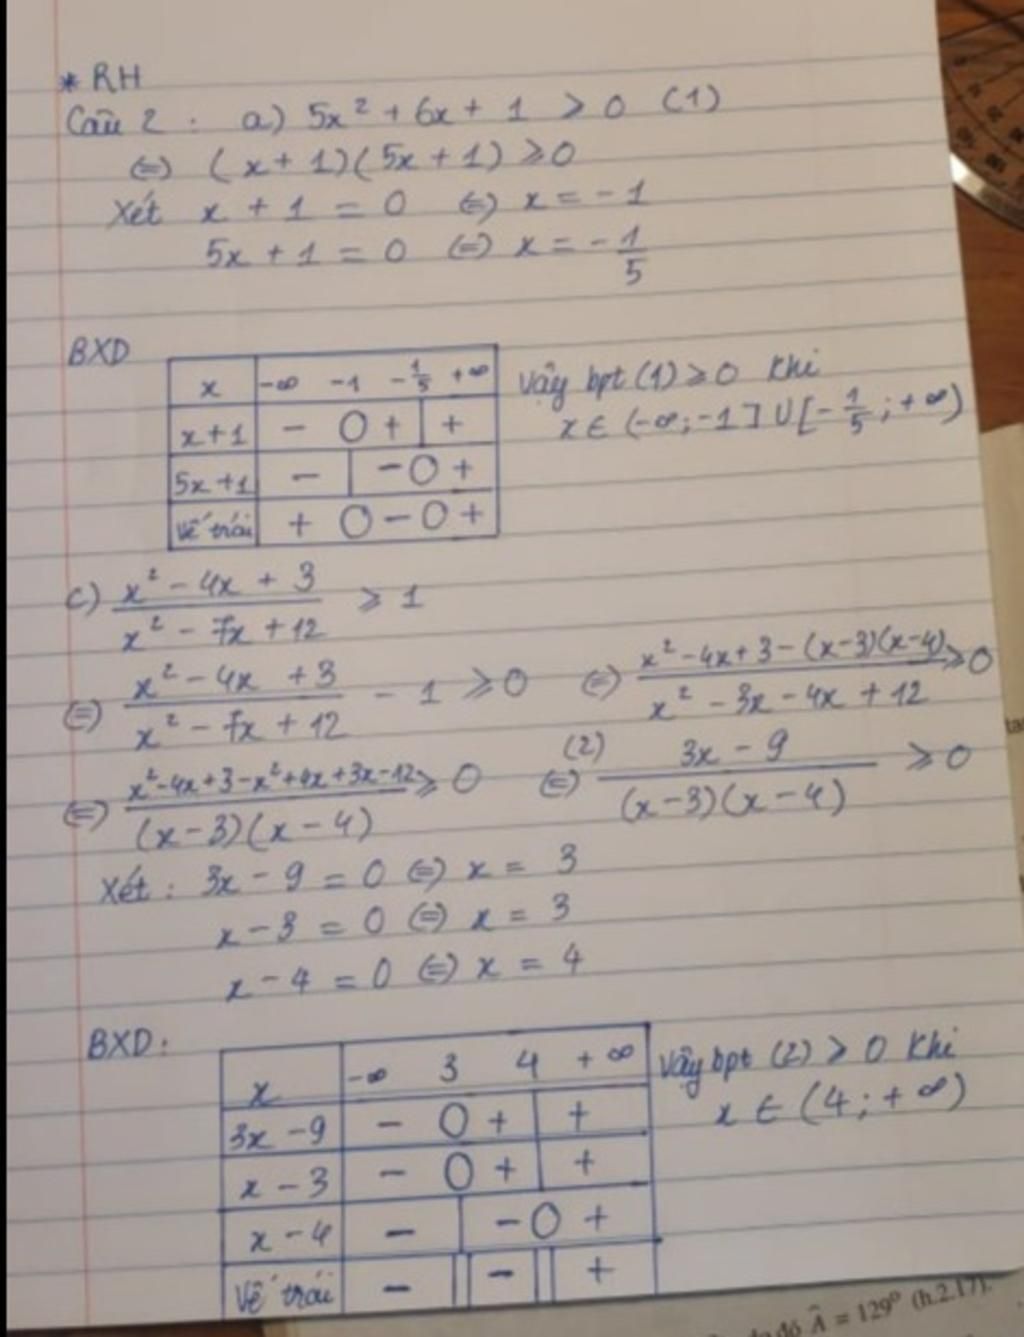 * RH
Câu 2 : a) 5x² + 6x + 1 ⩾ 0 (1)
(=) (x + 1)(5x + 1) ⩾ 0
Xét x + 1 = 0 (=) x = - 1
5x + 1 = 0 (=) x = - 1/5
BXD
x | -∞ -1 -1/5 +∞
x+1 | - 0 + | +
5x+1 | - | - 0 +
Vế trái | + 0 - 0 +
Vậy bpt (1) ⩾ 0 khi
x ∈ (-∞; -1] U [-1/5; +∞)
c) (x² - 4x + 3)/(x² - 7x + 12) ⩾ 1
(=) (x² - 4x + 3)/(x² - 7x + 12) - 1 ⩾ 0 (=) (x² - 4x + 3 - (x-3)(x-4))/(x² - 3x - 4x + 12) ⩾ 0
(=) (x² - 4x + 3 - x² + 4x + 3x - 12)/((x-3)(x-4)) ⩾ 0 (2) (=) (3x - 9)/((x-3)(x-4)) ⩾ 0
Xét : 3x - 9 = 0 (=) x = 3
x - 3 = 0 (=) x = 3
x - 4 = 0 (=) x = 4
BXD :
x | -∞ 3 4 +∞
3x - 9 | - 0 + | +
x - 3 | - 0 + | +
x - 4 | - | - 0 +
Vế trái | - || - || +
Vậy bpt (2) ⩾ 0 khi
x ∈ (4; +∞)
đó Â = 129⁰ (h.2.17).